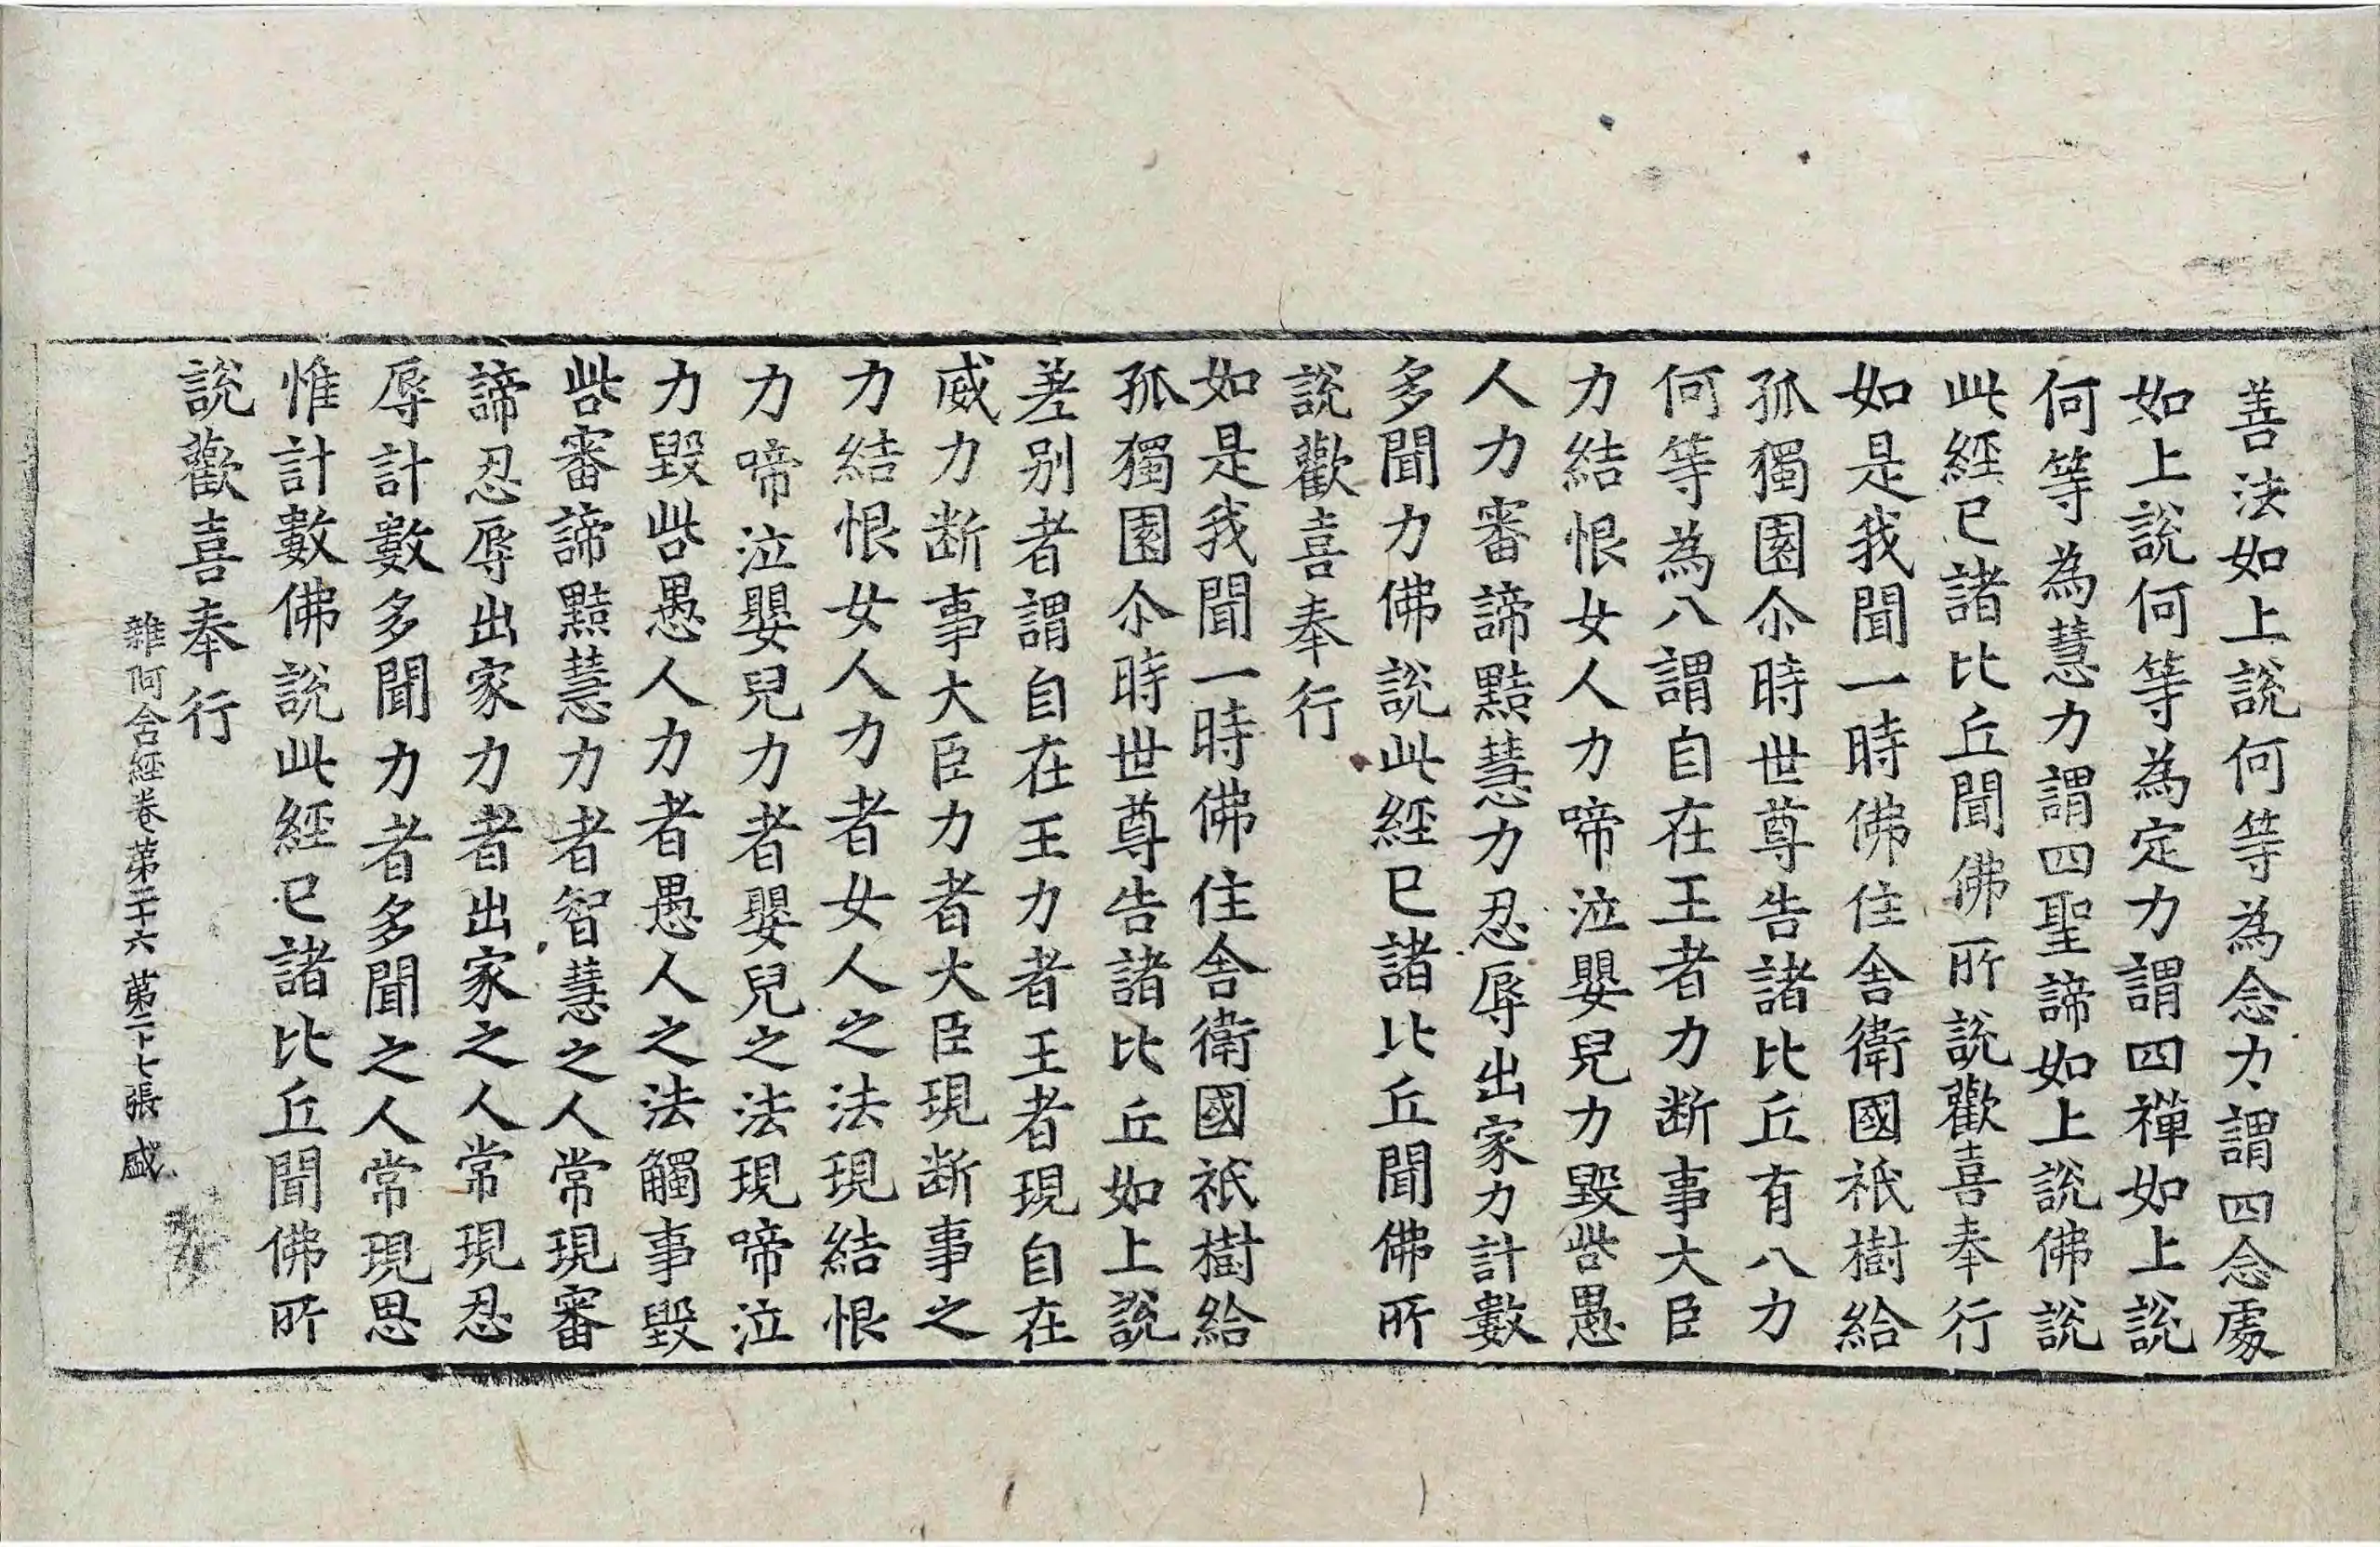 善法如上說何等為念力謂四念處
如上說何等為定力謂四禪如上說
何等為慧力謂四聖諦如上說佛說
此經已諸比丘聞佛所說歡喜奉行
如是我聞一時佛住舍衛國祇樹給
孤獨園尒時世尊告諸比丘有八力
何等為八謂自在王者力断事大臣
力結恨女人力啼泣嬰兒力毀呰愚
人力審諦黠慧力忍辱出家力計數
多聞力佛說此經已諸比丘聞佛所
說歡喜奉行
如是我聞一時佛住舍衛國祇樹給
孤獨園尒時世尊告諸比丘如上說
差别者謂自在王力者王者現自在
威力断事大臣力者大臣現断事之
力結恨女人力者女人之法現結恨
力啼泣嬰兒力者嬰兒之法現啼泣
力毀呰愚人力者愚人之法觸事毀
呰審諦黠慧力者智慧之人常現審
諦忍辱出家力者出家之人常現忍
辱計數多聞力者多聞之人常現思
惟計數佛說此經已諸比丘聞佛所
說歡喜奉行
雜阿含經卷苐二十六 苐二十七張 盛